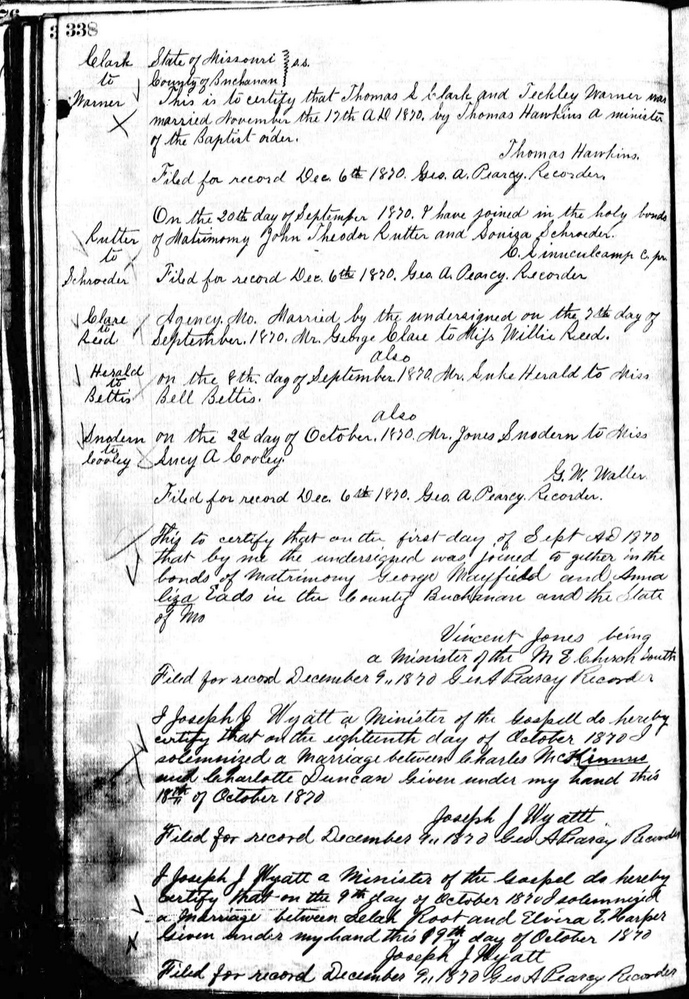 338
Clark
to
Warner
State of Missouri
County of Buchanan } s.s.
This is to certify that Thomas E Clark and Teckley Warner was
married November the 17th A.D 1870. by Thomas Hawkins a minister
of the Baptist order.
Thomas Hawkins.
Filed for record Dec. 6th 1870. Geo. A. Pearcy. Recorder.
Rutter
to
Schroeder
On the 20th day of September 1870. I have joined in the holy bonds
of Matrimony John Theodor Rutter and Louiza Schroeder.
Filed for record Dec. 6th 1870. Geo. A. Pearcy. Recorder
Clare
to
Reid
Agency. Mo. Married by the undersigned on the 7th day of
September. 1870. Mr. George Clare to Miss Willie Reed.
also
Herald
to
Bettis
on the 8th. day of September. 1870. Mr. Luke Herald to Miss
Bell Bettis.
also
Snodern
to
Cooley
on the 2d day of October. 1870. Mr. Jones Snodern to Miss
Lucy A Cooley.
G. W. Waller
Filed for record Dec. 6th 1870. Geo. A. Pearcy. Recorder.
This to certify that on the first day of Sept AD 1870
that by me the undersigned was joined to gether in the
bonds of Matrimony George Mayfield and Anna
liza Eads in the County Buchanan and the State
of Mo
Vincent Jones being
a Minister of the M E Church South
Filed for record December 9,, 1870 Geo A Pearcy Recorder
I Joseph J Wyatt a Minister of the Gospell do hereby
certify that on the eighteenth day of October 1870 I
solemnized a Marriage between Charles McKinnus
and Charlotte Duncan Given under my hand this
18th of October 1870
Joseph J Wyatt.
Filed for record December 9,, 1870 Geo A Pearcy Recorder
I Joseph J Wyatt a Minister of the Gospel do hereby
certify that on the 9th day of October 1870 I solemnized
a Marriage between Root and Elvira E. Harper
Given under my hand this 9th day of October 1870
Joseph J Wyatt
Filed for record December 9,, 1870 Geo A Pearcy Recorder